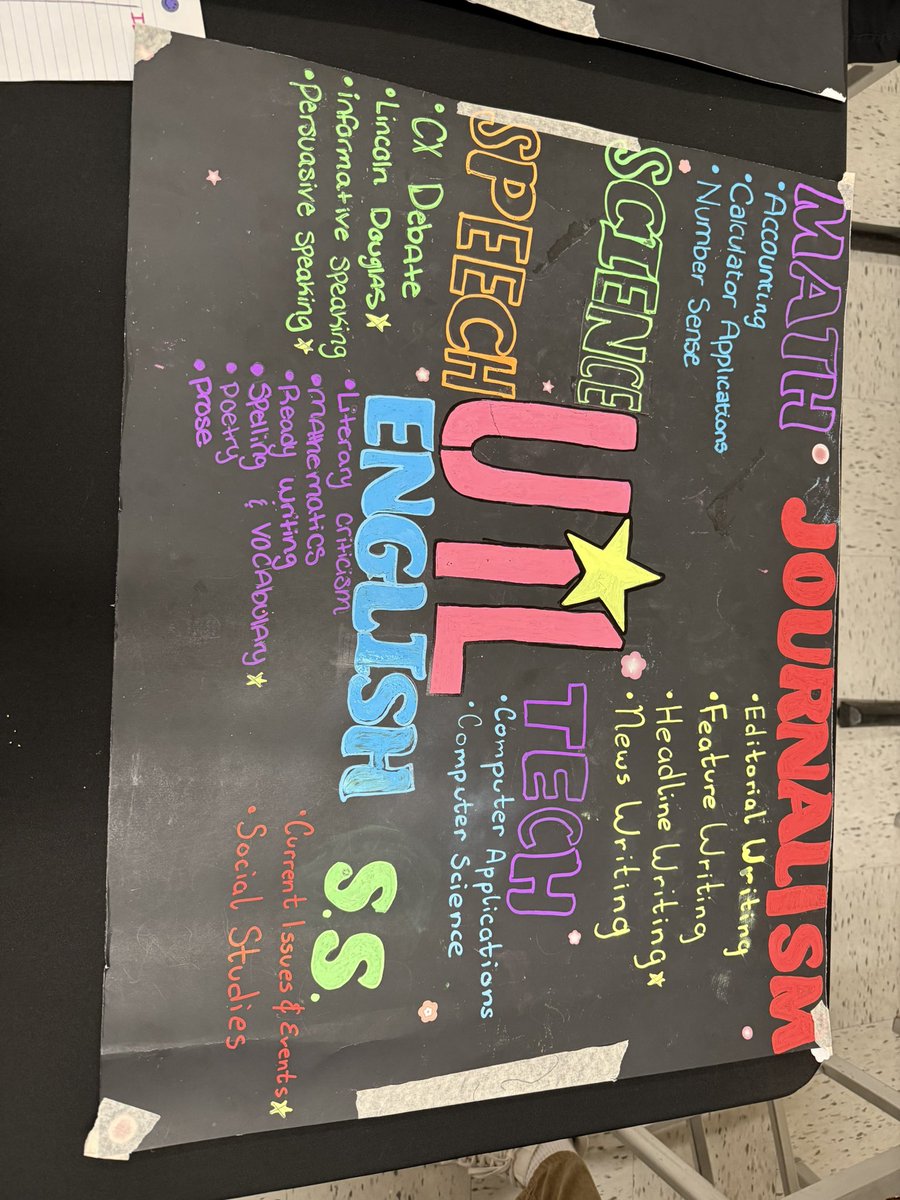 MATH
• Accounting
• Calculator Applications
• Number Sense
JOURNALISM
• Editorial Writing
• Feature Writing
• Headline Writing
• News Writing
SCIENCE
UIL
TECH
• Computer Applications
• Computer Science
SPEECH
• CX Debate
• Lincoln Douglas
• informative speaking
• persuasive speaking
ENGLISH
• Literary criticism
• mathematics
• Ready writing
• Spelling & vocabulary
• Poetry
• prose
S.S.
• Current Issues & Events
• Social Studies